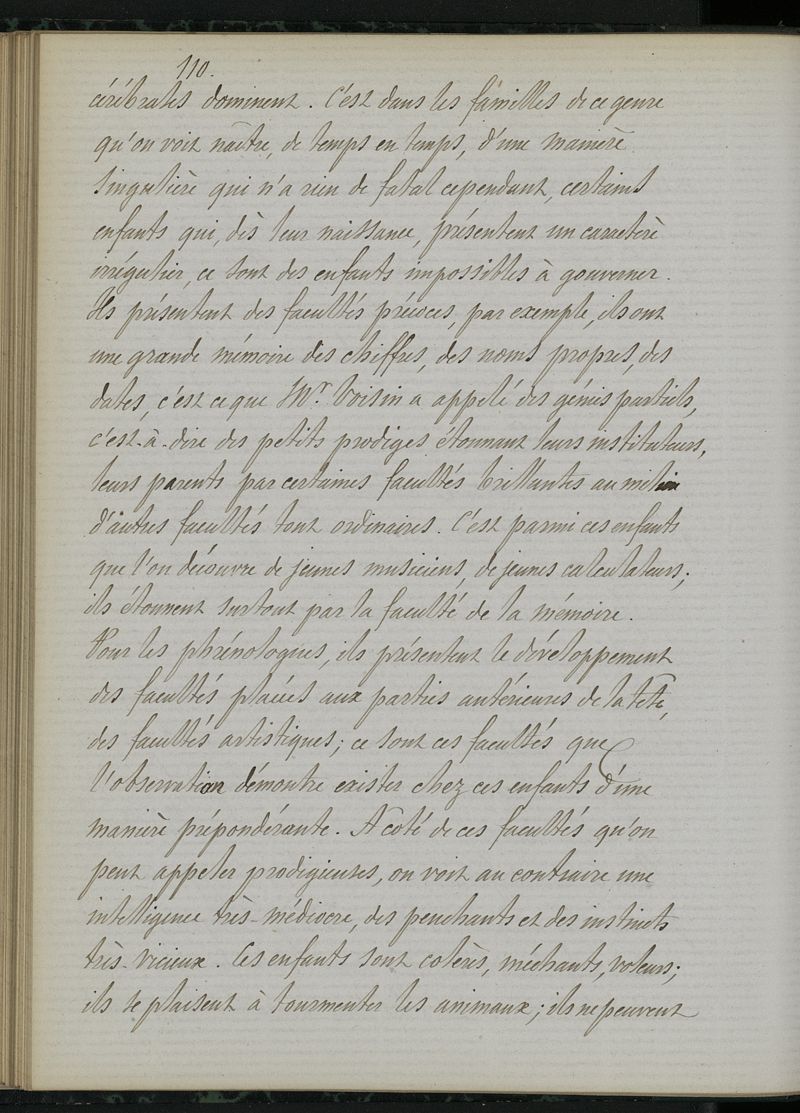 110.
cérébrales dominent. C'est dans les familles de ce genre
qu'on voit naître, de temps en temps, d'une manière
singulière qui n'a rien de fatal cependant, certains
enfants qui, dès leur naissance, présentent un caractère
irrégulier, ce sont des enfants impossibles à gouverner.
Ils présentent des facultés précoces, par exemple, ils ont
une grande mémoire des chiffres, des noms propres, des
dates, c'est ce que Mr. Voisin a appelé des génies partiels,
c'est-à-dire des petits prodiges étonnant leurs instituteurs,
leurs parents par certaines facultés brillantes au milieu
d'autres facultés tout ordinaires. C'est parmi ces enfants
que l'on découvre de jeunes musiciens, de jeunes calculateurs;
ils étonnent surtout par la faculté de la mémoire.
Pour les phrénologues, ils présentent le développement
des facultés placées aux parties antérieures de la tête,
des facultés artistiques; ce sont ces facultés que
l'observation démontre exister chez ces enfants d'une
manière prépondérante. A côté de ces facultés qu'on
peut appeler prodigieuses, on voit au contraire une
intelligence très-médiocre, des penchants et des instincts
très-vicieux. Ces enfants sont colères, méchants, voleurs;
ils se plaisent à tourmenter les animaux; ils ne peuvent